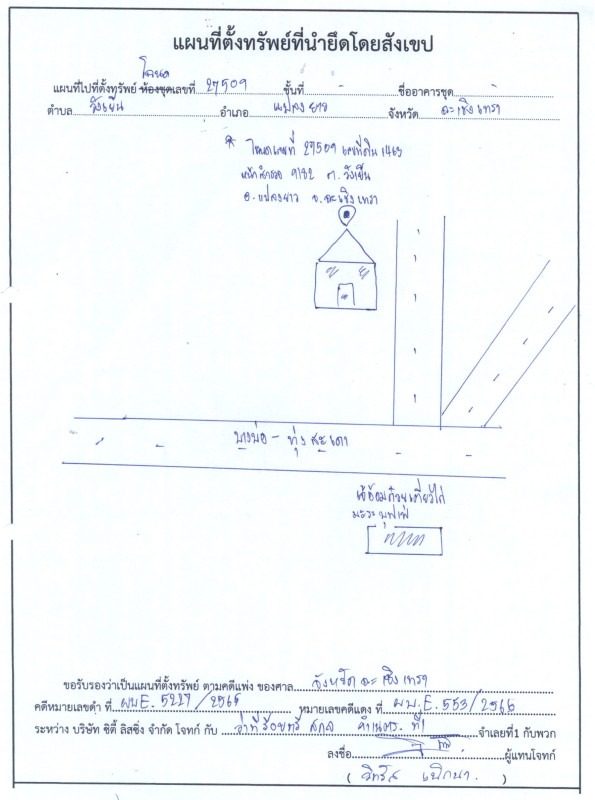 แผนที่ตั้งทรัพย์ที่นำยึดโดยสังเขป
โฉนด
แผนที่ไปที่ตั้งทรัพย์ ห้องชุดเลขที่ 27509 ชั้นที่ - ชื่ออาคารชุด -
ตำบล วังเย็น อำเภอ แปลงยาว จังหวัด ฉะเชิงเทรา
* โฉนดเลขที่ 27509 เลขที่ดิน 1463
หน้าสำรวจ 9182 ต. วังเย็น
อ. แปลงยาว จ. ฉะเชิงเทรา
บางบ่อ - ทุ่งสะเดา
เจ้อ้อมก๋วยเตี๋ยวไก่
มะระบุฟเฟ่
ขอรับรองว่าเป็นแผนที่ตั้งทรัพย์ ตามคดีแพ่ง ของศาล จังหวัดฉะเชิงเทรา
คดีหมายเลขดำ ที่ ผบE. 5227/2565 หมายเลขคดีแดง ที่ ผบ.E. 553/2566
ระหว่าง บริษัท ซิตี้ ลิสซิ่ง จำกัด โจทก์ กับ ว่าที่ร้อยตรี สกล ที่1 จำเลยที่1 กับพวก
ลงชื่อ ผู้แทนโจทก์
( )